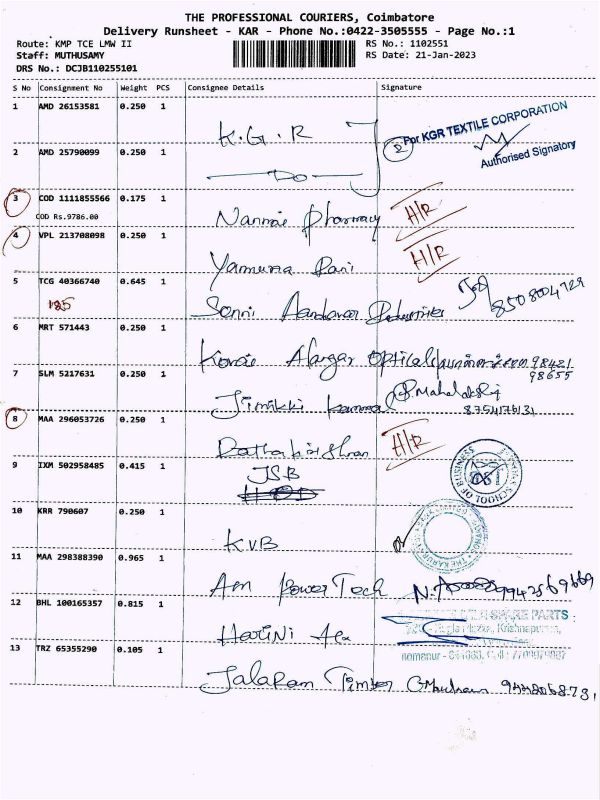 THE PROFESSIONAL COURIERS, Coimbatore
Delivery Runsheet - KAR - Phone No.:0422-3505555 - Page No.:1
Route: KMP TCE LMW II RS No.: 1102551
Staff: MUTHUSAMY RS Date: 21-Jan-2023
DRS No.: DCJB110255101
S No Consignment No Weight PCS Consignee Details Signature
1 AMD 26153581 0.250 1 K.G.R For KGR TEXTILE CORPORATION
Authorised Signatory
2 AMD 25790099 0.250 1 Do
3 COD 1111855566 0.175 1 Nannai Pharmacy H/R
COD Rs.9786.00
4 VPL 213708098 0.250 1 Yamuna Rani H/R
5 TCG 40366740 0.645 1 Sonni Aandavar Industries 8508004729
185
6 MRT 571443 0.250 1 Kovai Alagar Opticals 98421
98655
7 SLM 5217631 0.250 1 Jimikki Kammal
8754176131
8 MAA 296053726 0.250 1 H/R
9 IXM 502958485 0.415 1 JSB
SCHOOL OF BUSINESS
10 KRR 790607 0.250 1 KVB
11 MAA 298388390 0.965 1 Am Power Tech 9942569669
12 BHL 100165357 0.815 1 Harini SPARE PARTS
13 TRZ 65355290 0.105 1 Jalaram Timber